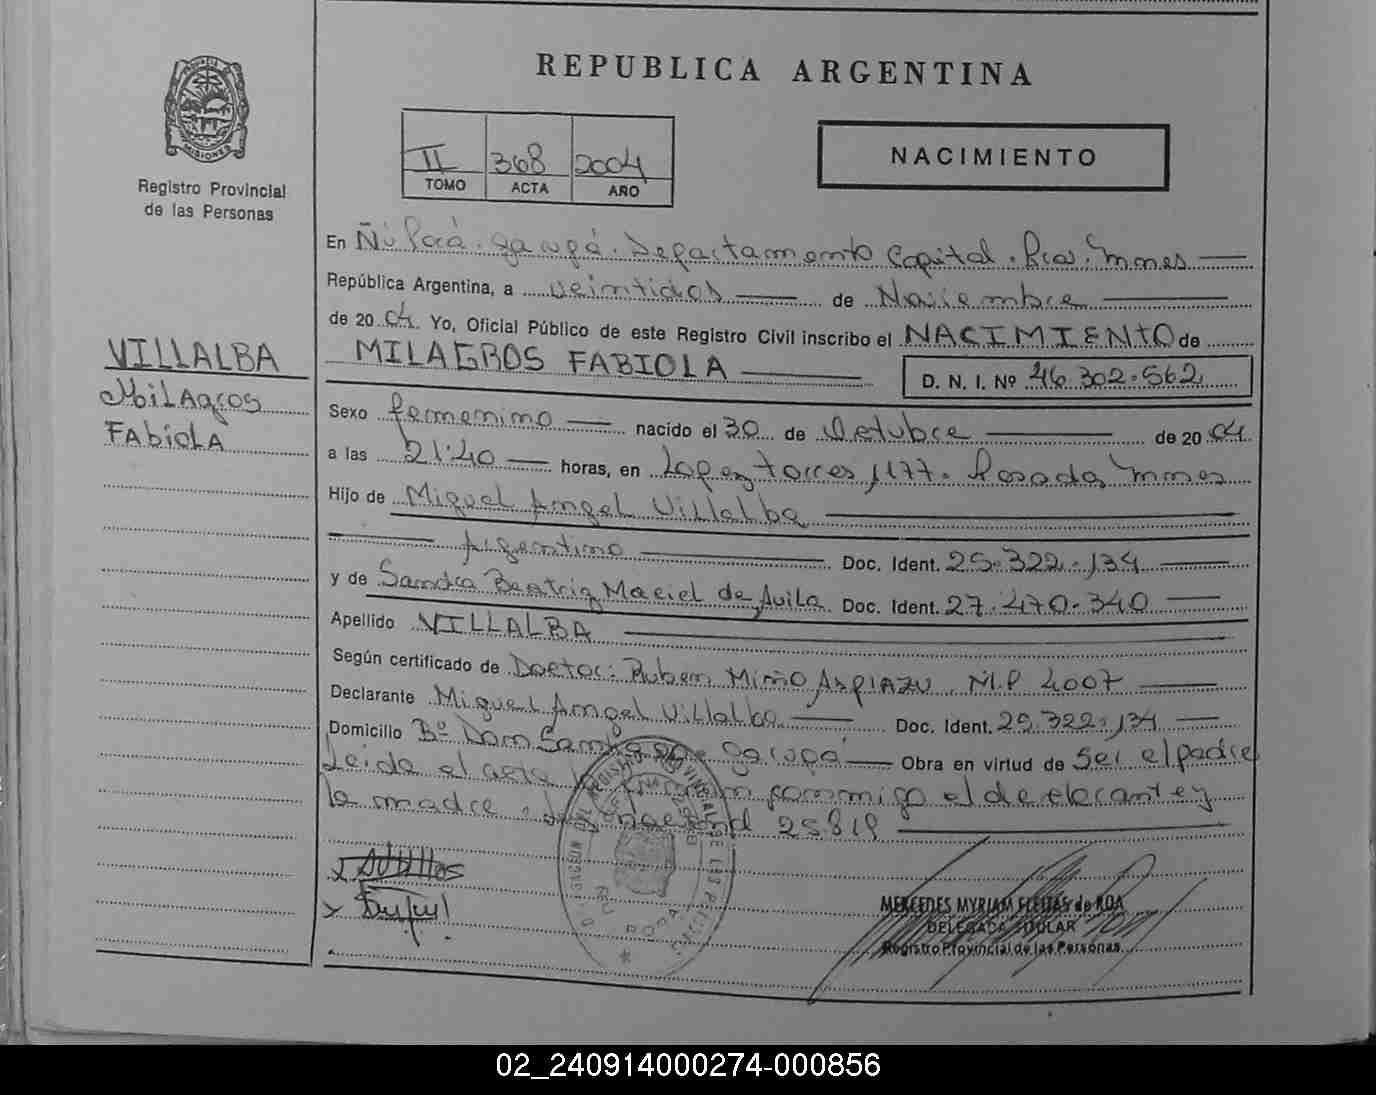 REPUBLICA ARGENTINA
MISIONES
Registro Provincial
de las Personas
II 368 2004
TOMO ACTA AÑO
NACIMIENTO
En Ñú Porá. Garupá. Departamento Capital. Pcia. Mnes
República Argentina, a veintidos de Noviembre
de 2004. Yo, Oficial Público de este Registro Civil inscribo el NACIMIENTO de
MILAGROS FABIOLA
D. N. I. Nº 46.302.562
VILLALBA
Milagros
Fabiola
Sexo femenino nacido el 30 de Octubre de 2004
a las 21:40 horas, en Lopez Torres 1177. Posadas Mnes
Hijo de Miguel Angel Villalba
Argentino Doc. Ident. 25.322.134
y de Sandra Beatriz Maciel de Avila Doc. Ident. 27.470.340
Apellido VILLALBA
Según certificado de Doctor: Ruben Miño Aspiazu M.P 4007
Declarante Miguel Angel Villalba Doc. Ident. 25.322.134
Domicilio Bº Don Santiago Garupá Obra en virtud de Ser el padre
Leida el acta la firman conmigo el declarante y
la madre. Ley Nacional 25819
MERCEDES MYRIAM FLEITAS de ROA
DELEGADA TITULAR
Registro Provincial de las Personas
02_240914000274-000856